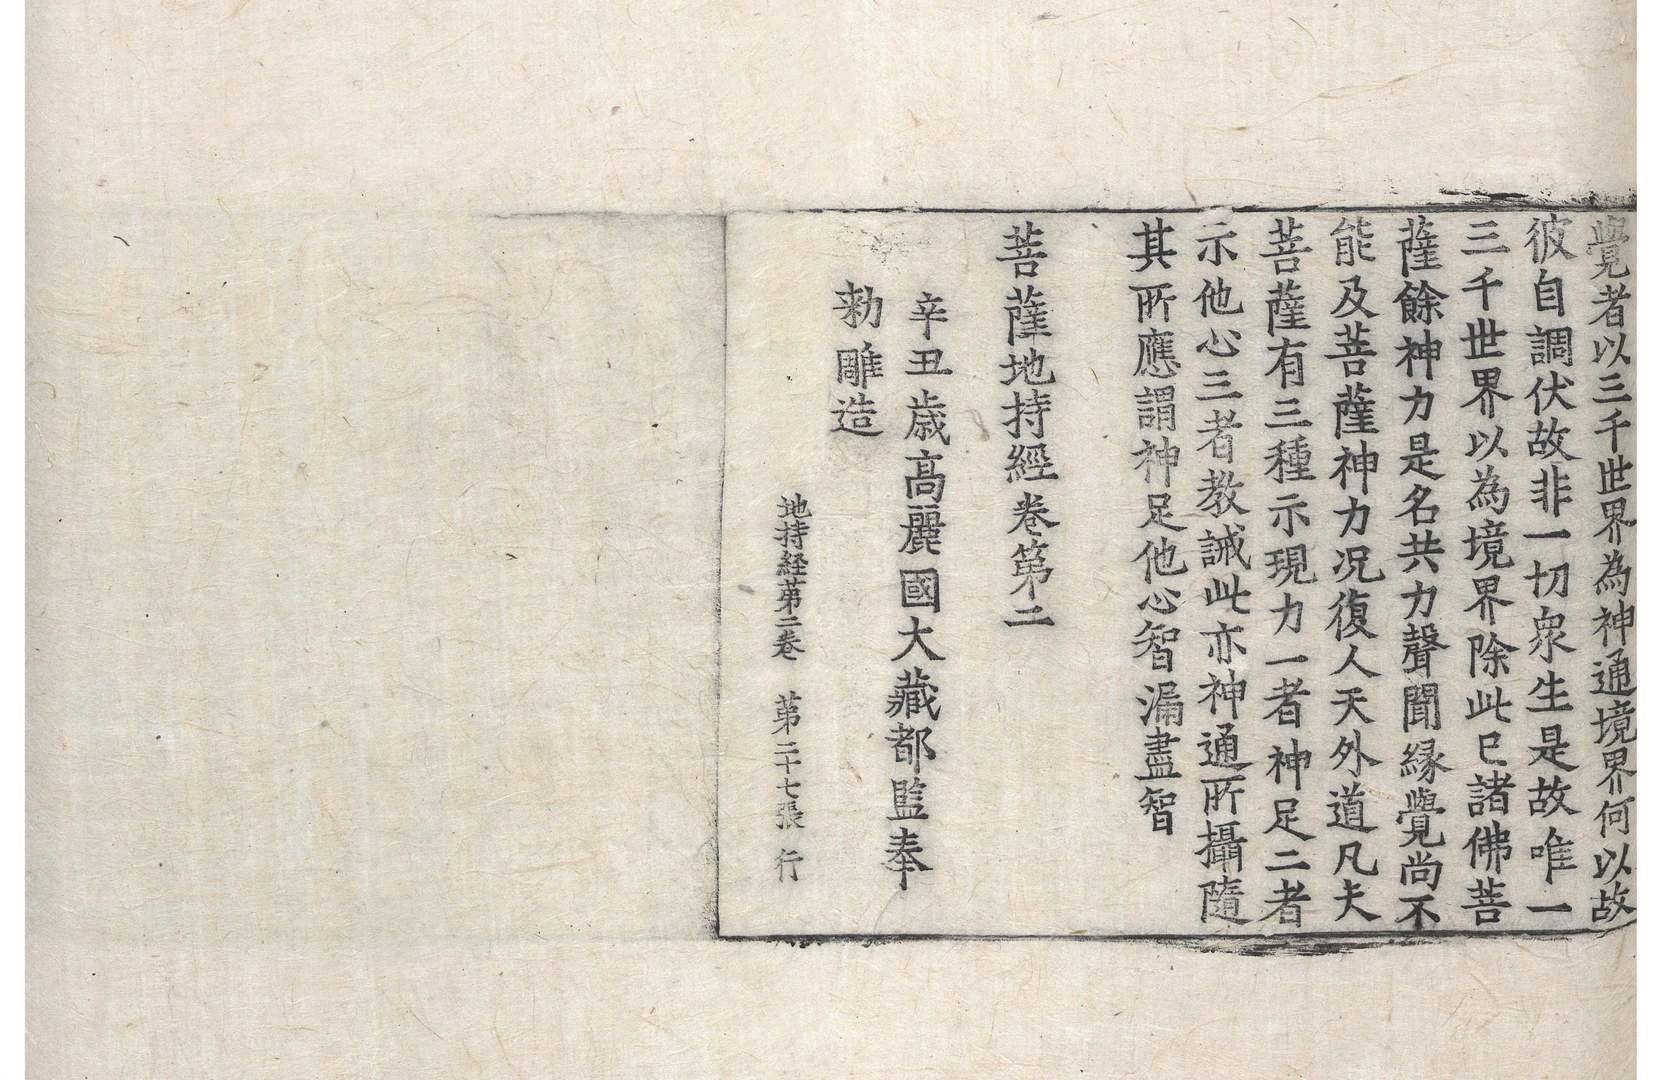 覺者以三千世界為神通境界何以故
彼自調伏故非一切衆生是故唯一
三千世界以為境界除此已諸佛菩
薩餘神力是名共力聲聞緣覺尚不
能及菩薩神力况復人天外道凡夫
菩薩有三種示現力一者神足二者
示他心三者教誡此亦神通所攝隨
其所應謂神足他心智漏盡智
菩薩地持經卷第二
辛丑歲高麗國大藏都監奉
勅雕造
地持経苐二卷 苐二十七張 行